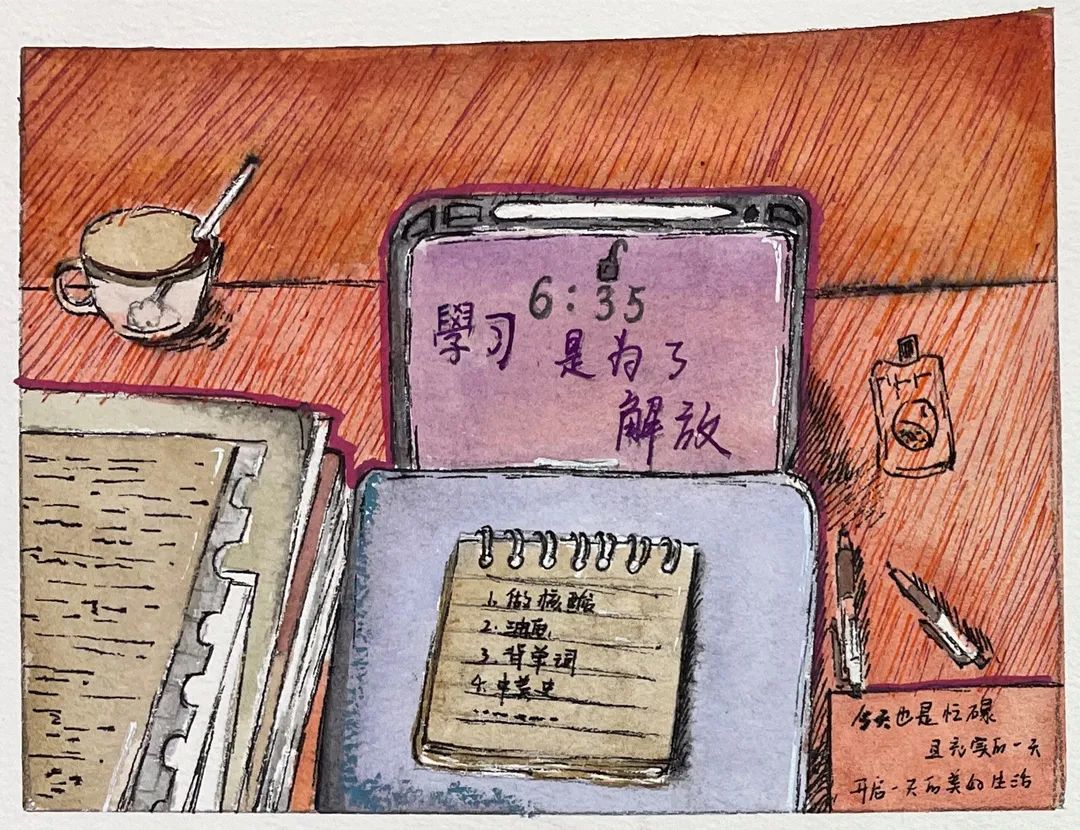 6:35
學习
是为了
解放
1. 做核酸
2. 油画
3. 背单词
4. 中美史
今天也是忙碌
且充实的一天
开启一天的美好生活